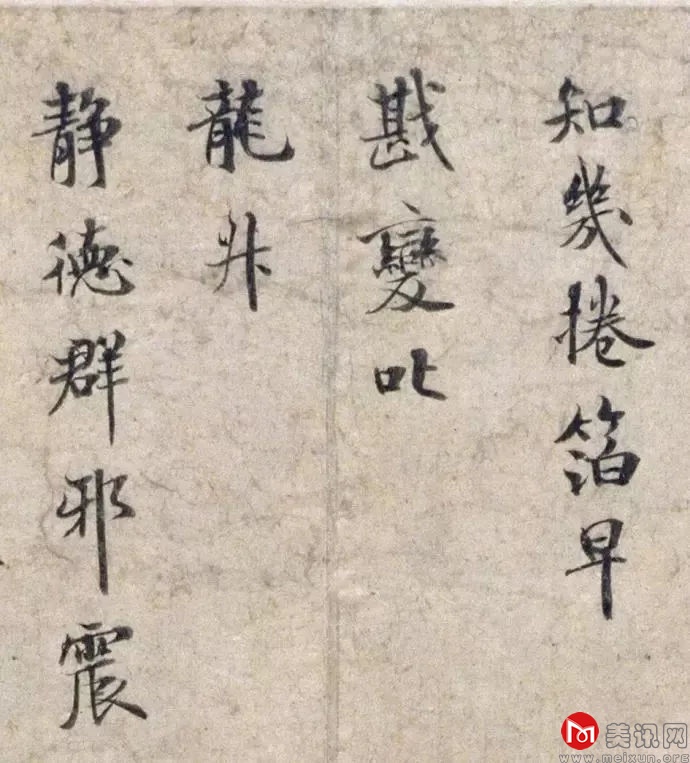 知幾捲箔早
戡變叱
龍升
静德群邪震
美讯网
www.meixun.org